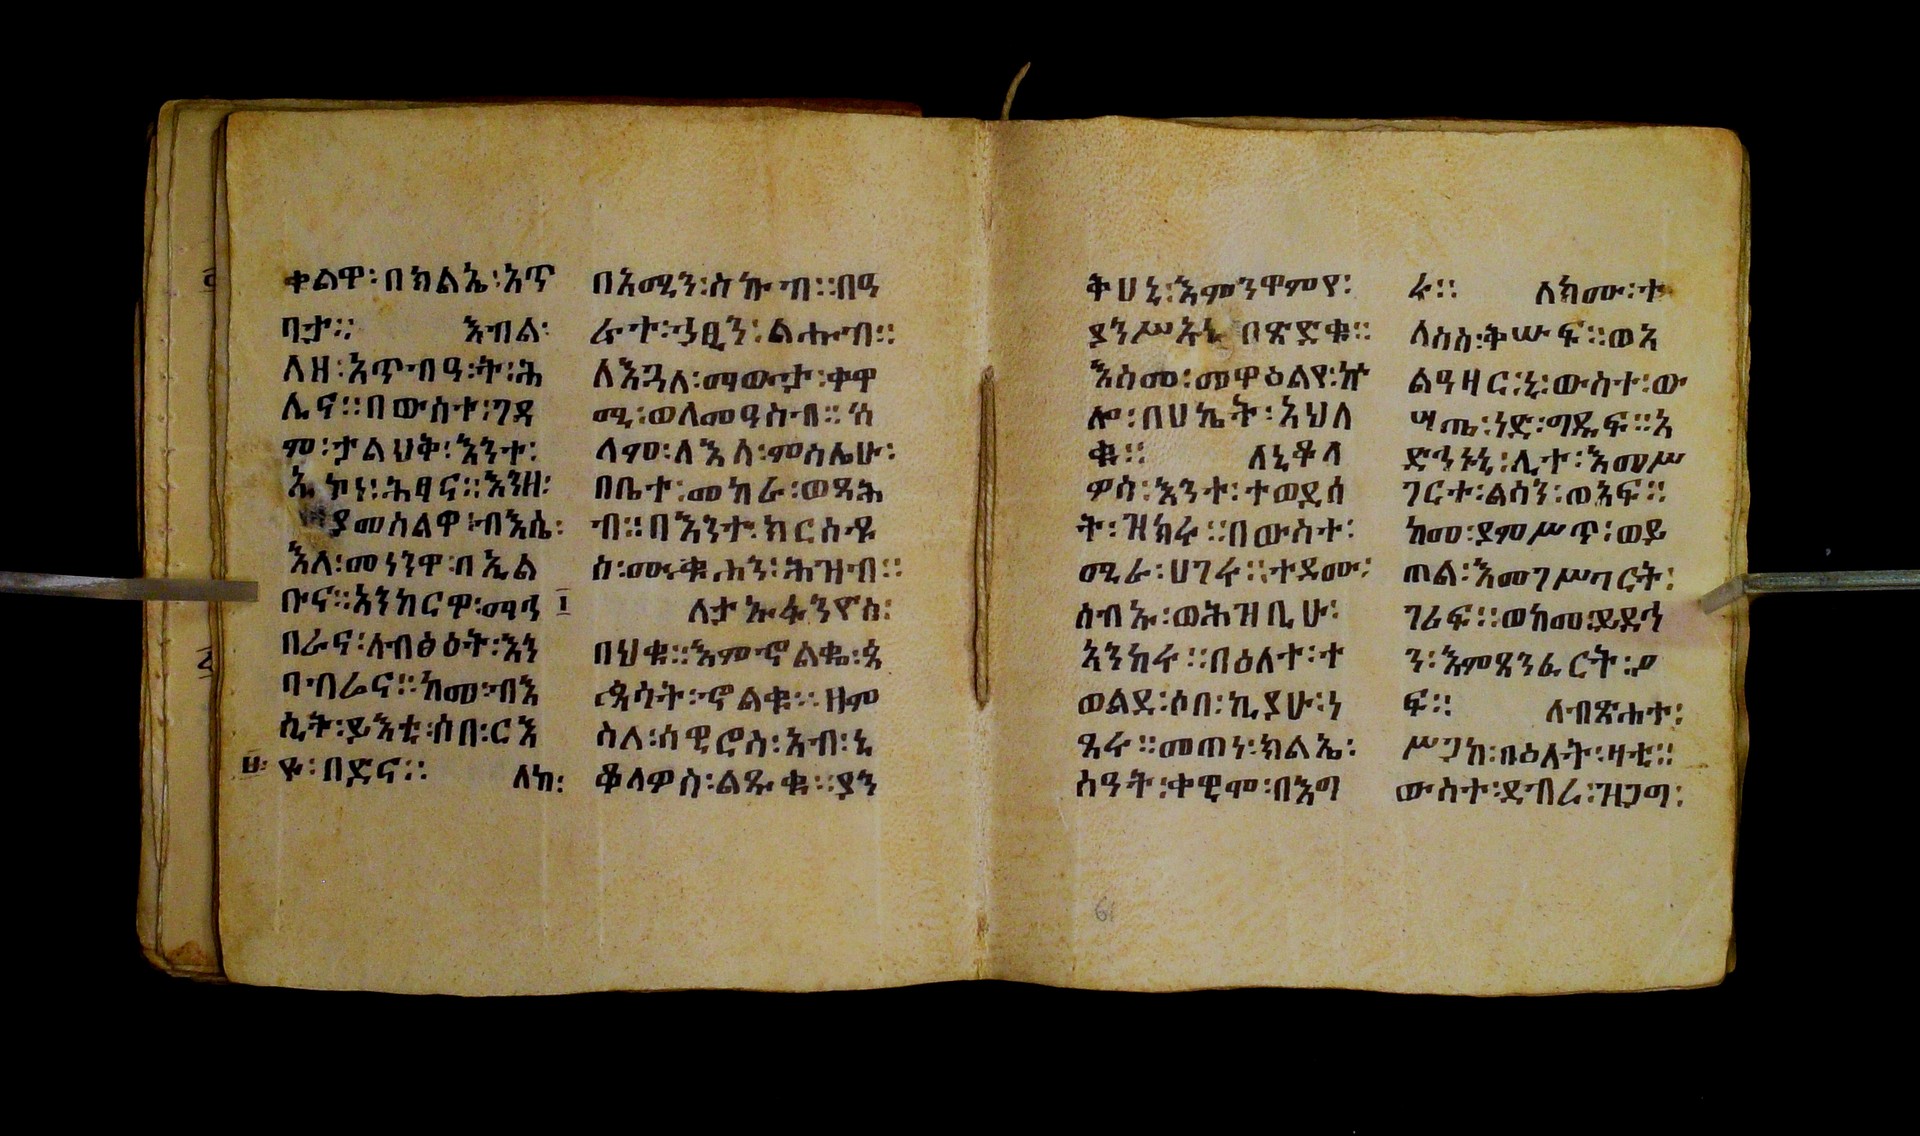 ቀልዋ፡በክልኤ፡አጥ
ባታ። እብል፡
ለዘ፡አጥብዓ፡ት፡ሕ
ሊና።በውስተ፡ገዳ
ም፡ታልህቅ፡እንተ፡
ኢኮነ፡ሕፃና።እንዘ፡
ያመስልዋ፡ብእሴ፡
እለ፡መነንዋ፡በኢል
ቡና።አንከርዋ፡ማኅ
በራና፡ለብፅዕት፡እን
ባብሬና።ከመ፡ብእ
ሲት፡ይእቲ፡ሶበ፡ርእ
ዩ፡በድና። ለከ፡
በአሚን፡ስኩብ።በዓ
ራተ፡ኃፂን፡ልሑብ።
ለእጓለ፡ማውታ፡ቀዋ
ሚ፡ወለመዓስብ።ሰ
ላም፡ለእለ፡ምስሌሁ፡
በቤተ፡መከራ፡ወጻሕ
ብ።በእንተ፡ክርስቶ
ስ፡ሙቁሐን፡ሕዝብ።
፤ ለታኡፋንዮስ፡
በህቁ።እምኆልቈ፡ጳ
ጳሳት፡ኆልቁ።ዘም
ስለ፡ሳዊሮስ፡አብ፡ኒ
ቆላዎስ፡ልጹቁ።ያን
ቅሀኒ፡እምንዋምየ፡
ያንሥኣኒ በጽድቁ።
እስመ፡መዋዕልየ፡ኵ
ሎ፡በሀኬት፡አህለ
ቁ። ለኒቆላ
ዎስ፡እንተ፡ተወደሰ
ት፡ዝክሩ።በውስተ፡
ሚራ፡ሀገሩ።ተደሙ፡
ሰብኡ፡ወሕዝቢሁ፡
አንከሩ።በዕለተ፡ተ
ወልደ፡ሶበ፡ኪያሁ፡ነ
ጸሩ።መጠነ፡ክልኤ፡
ሰዓት፡ቀዊሞ፡በእግ
ሩ። ለክሙ፡ተ
ላስስ፡ቅሡፍ።ወአ
ልዓዛር፡ኒ፡ውስተ፡ው
ሣጤ፡ነድ፡ግዱፍ።አ
ድኅኑኒ፡ሊተ፡እመሥ
ገርተ፡ልሳን፡ወአፍ።
ከመ፡ያምሥጥ፡ወይ
ጠል፡እመገሥባርት፡
ገራፍ።ወከመ፡ይድኅ
ን፡እምጸንፈርት፡ዖ
ፍ። ለብጽሐተ፡
ሥጋከ፡በዕለት፡ዛቲ።
ውስተ፡ደብረ፡ዝጋግ፡